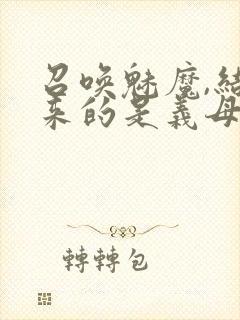 召喚魅魔,結
來的是義母
轉轉包